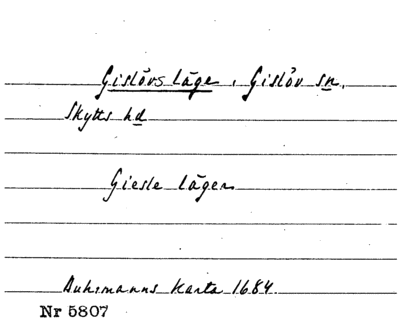 Gislövs läge, Gislöv sn.
Skytts hd
Giesle läger
Buhrmanns karta 1684.
Nr 5807